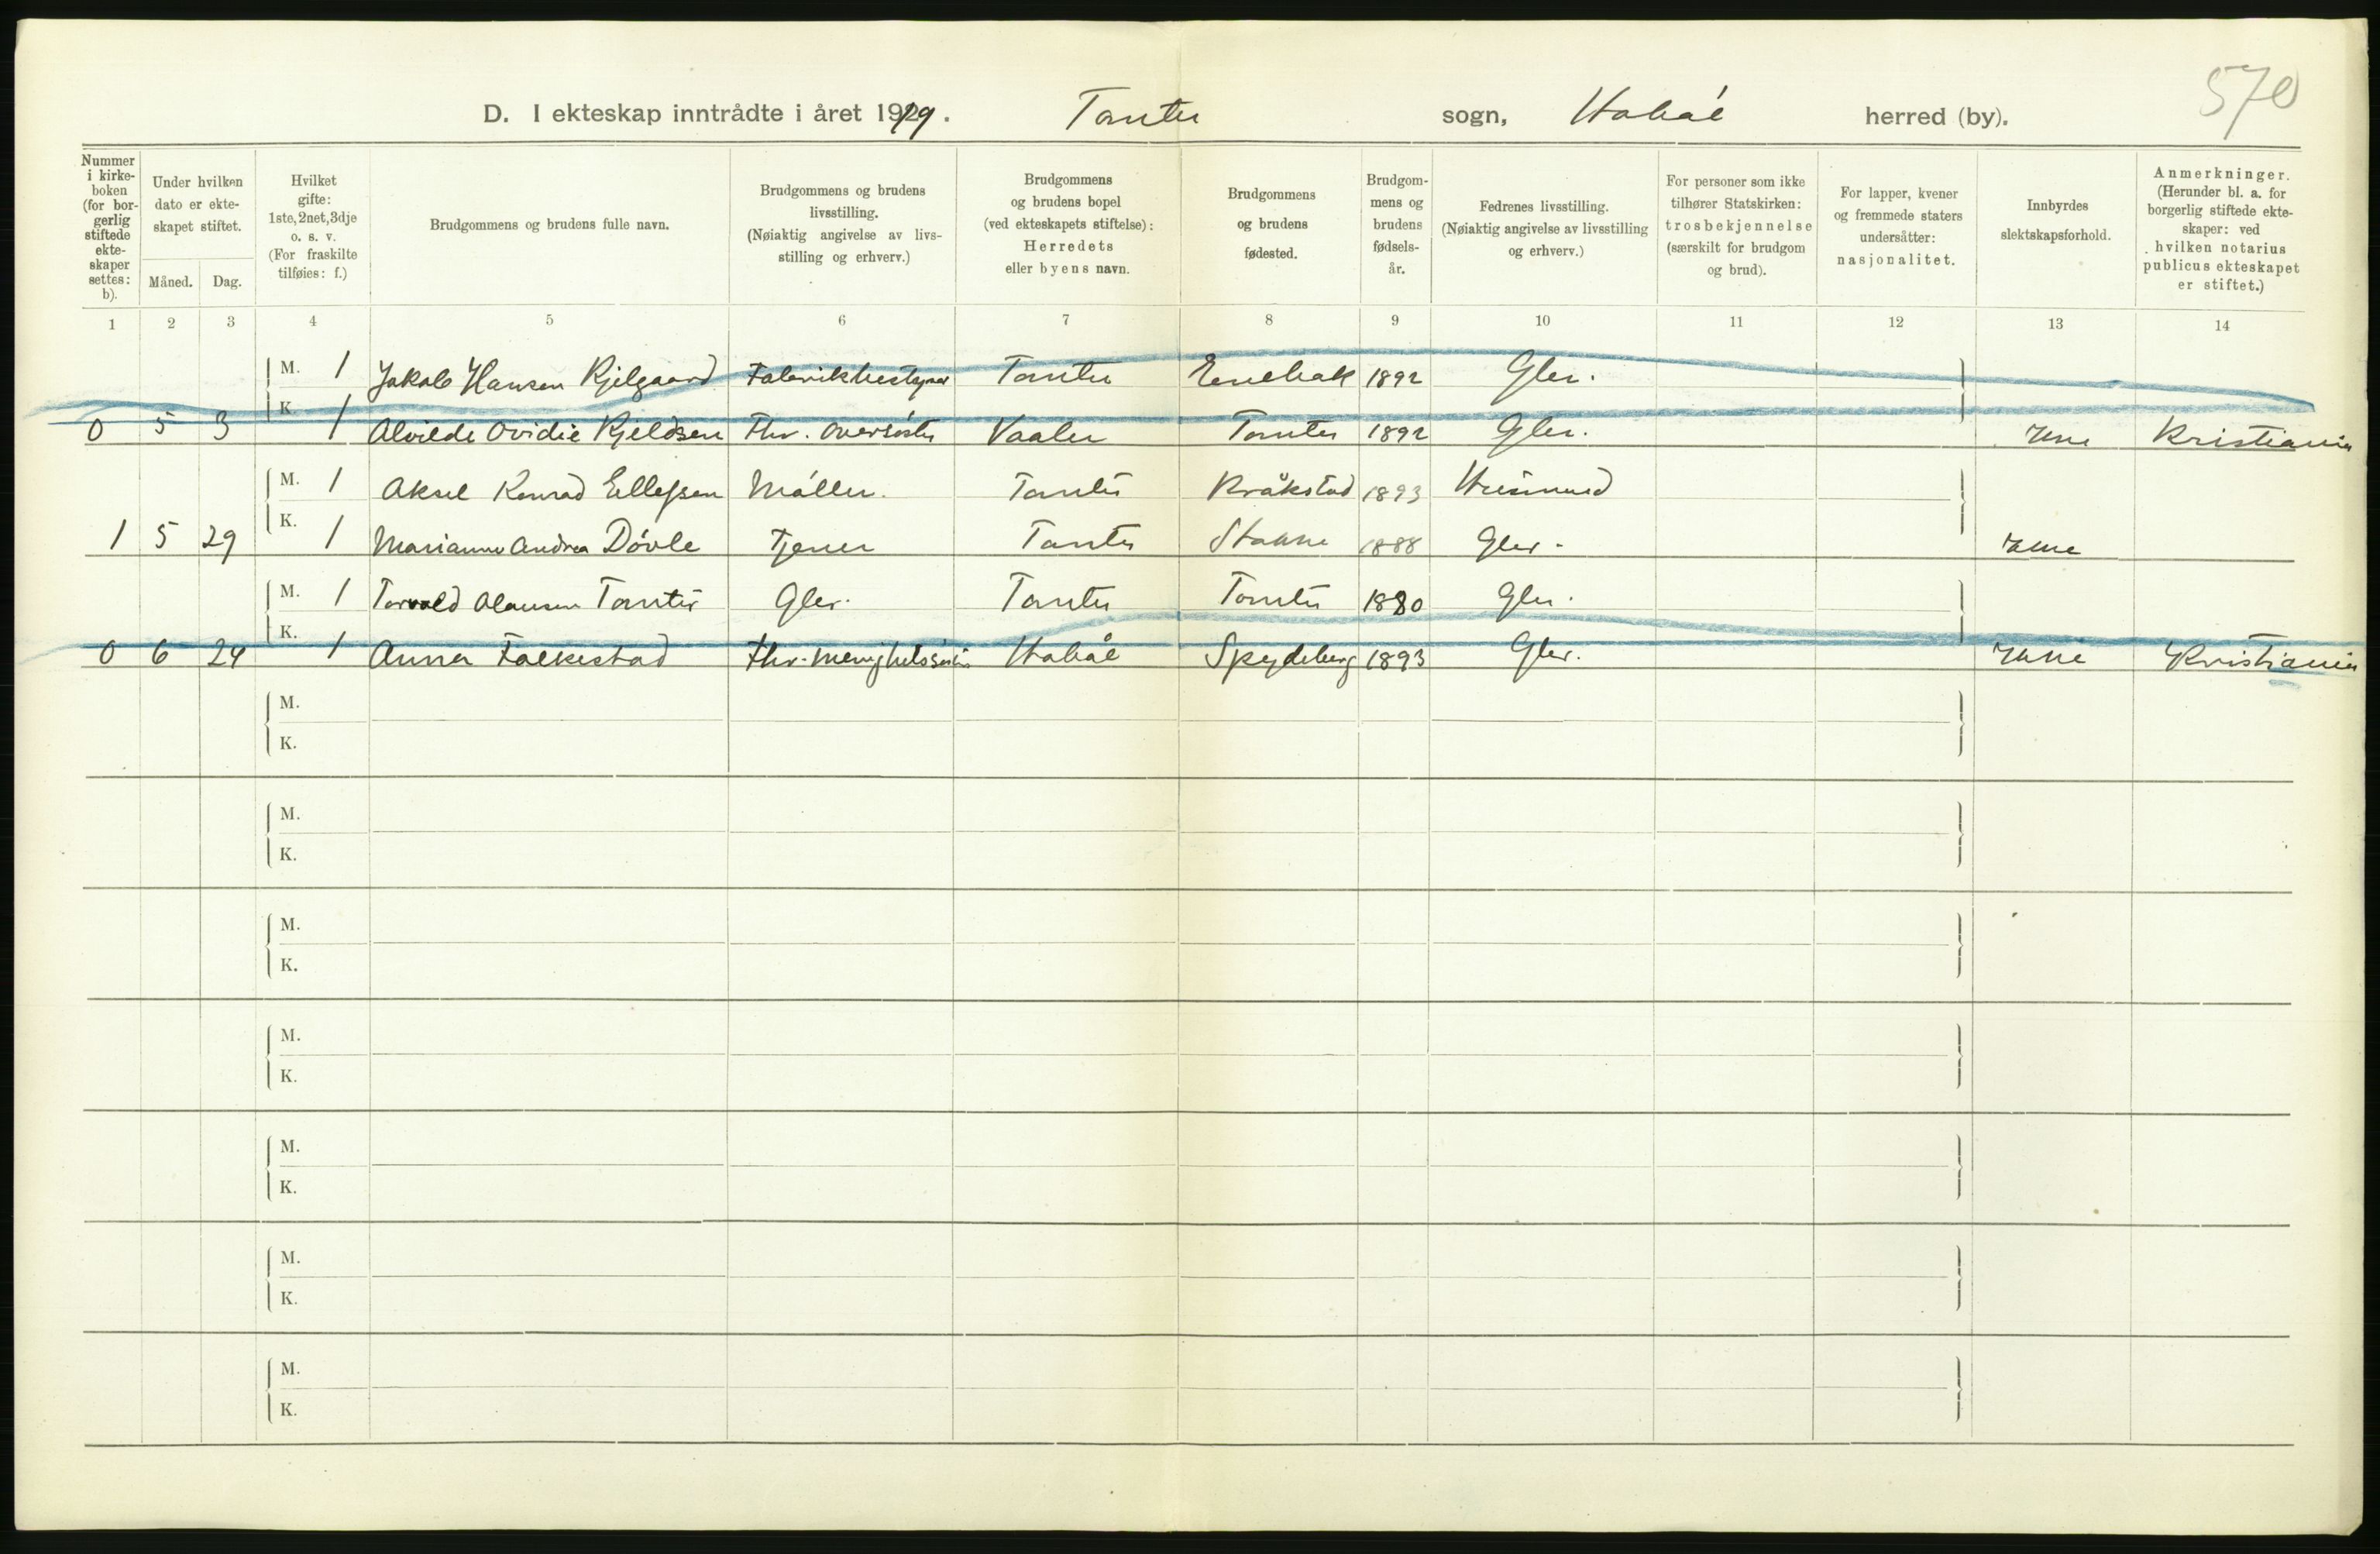 570
D. I ekteskap inntrådte i året 1919. Tomter sogn, Hobøl herred (by).
Nummer i kirkeboken (for borgerlig stiftede ekteskaper settes: b).
Under hvilken dato er ekteskapet stiftet.
Måned. Dag.
Hvilket gifte: 1ste, 2net, 3dje o. s. v. (For fraskilte tilføies: f.)
Brudgommens og brudens fulle navn.
Brudgommens og brudens livsstilling. (Nøiaktig angivelse av livsstilling og erhverv.)
Brudgommens og brudens bopel (ved ekteskapets stiftelse): Herredets eller byens navn.
Brudgommens og brudens fødested.
Brudgommens og brudens fødselsår.
Fedrenes livsstilling. (Nøiaktig angivelse av livsstilling og erhverv.)
For personer som ikke tilhører Statskirken: trosbekjennelse (særskilt for brudgom og brud).
For lapper, kvener og fremmede staters undersåtter: nasjonalitet.
Innbyrdes slektskapsforhold.
Anmerkninger. (Herunder bl. a. for borgerlig stiftede ekteskaper: ved hvilken notarius publicus ekteskapet er stiftet.)
1 2 3 4 5 6 7 8 9 10 11 12 13 14
M. 1 Jakob Hansen Kjelgaard Fabrikbestyrer Tomter Enebak 1892 Gbr.
0 5 3 K. 1 Alvilde Ovidie Kjeldsen Fhv. oversøster Vaaler Tomter 1892 Gbr. Kristiania
M. 1 Aksel Konrad Ellefsen Møller. Tomter Kråkstad 1893 Husmand
1 5 29 K. 1 Marianne Andrea Døvle Tjener Tomter 1888 Gbr.
M. 1 Torvald Olausen Tomter Gbr. Tomter Tomter 1880 Gbr.
0 6 24 K. 1 Anna Falkestad fhv. menighetssøster Hobøl Spydeberg 1893 Gbr. Kristiania
M.
K.
M.
K.
M.
K.
M.
K.
M.
K.
M.
K.
M.
K.